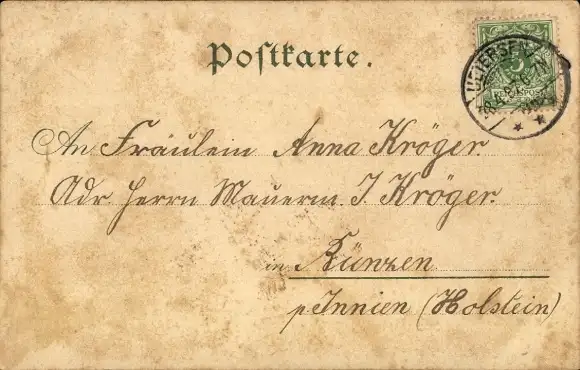 Postkarte.
UETERSEN
5
An Fräulein Anna Kröger.
Adr. Herrn Mauerm. J. Kröger.
in Bünzen
p. Innien (Holstein)